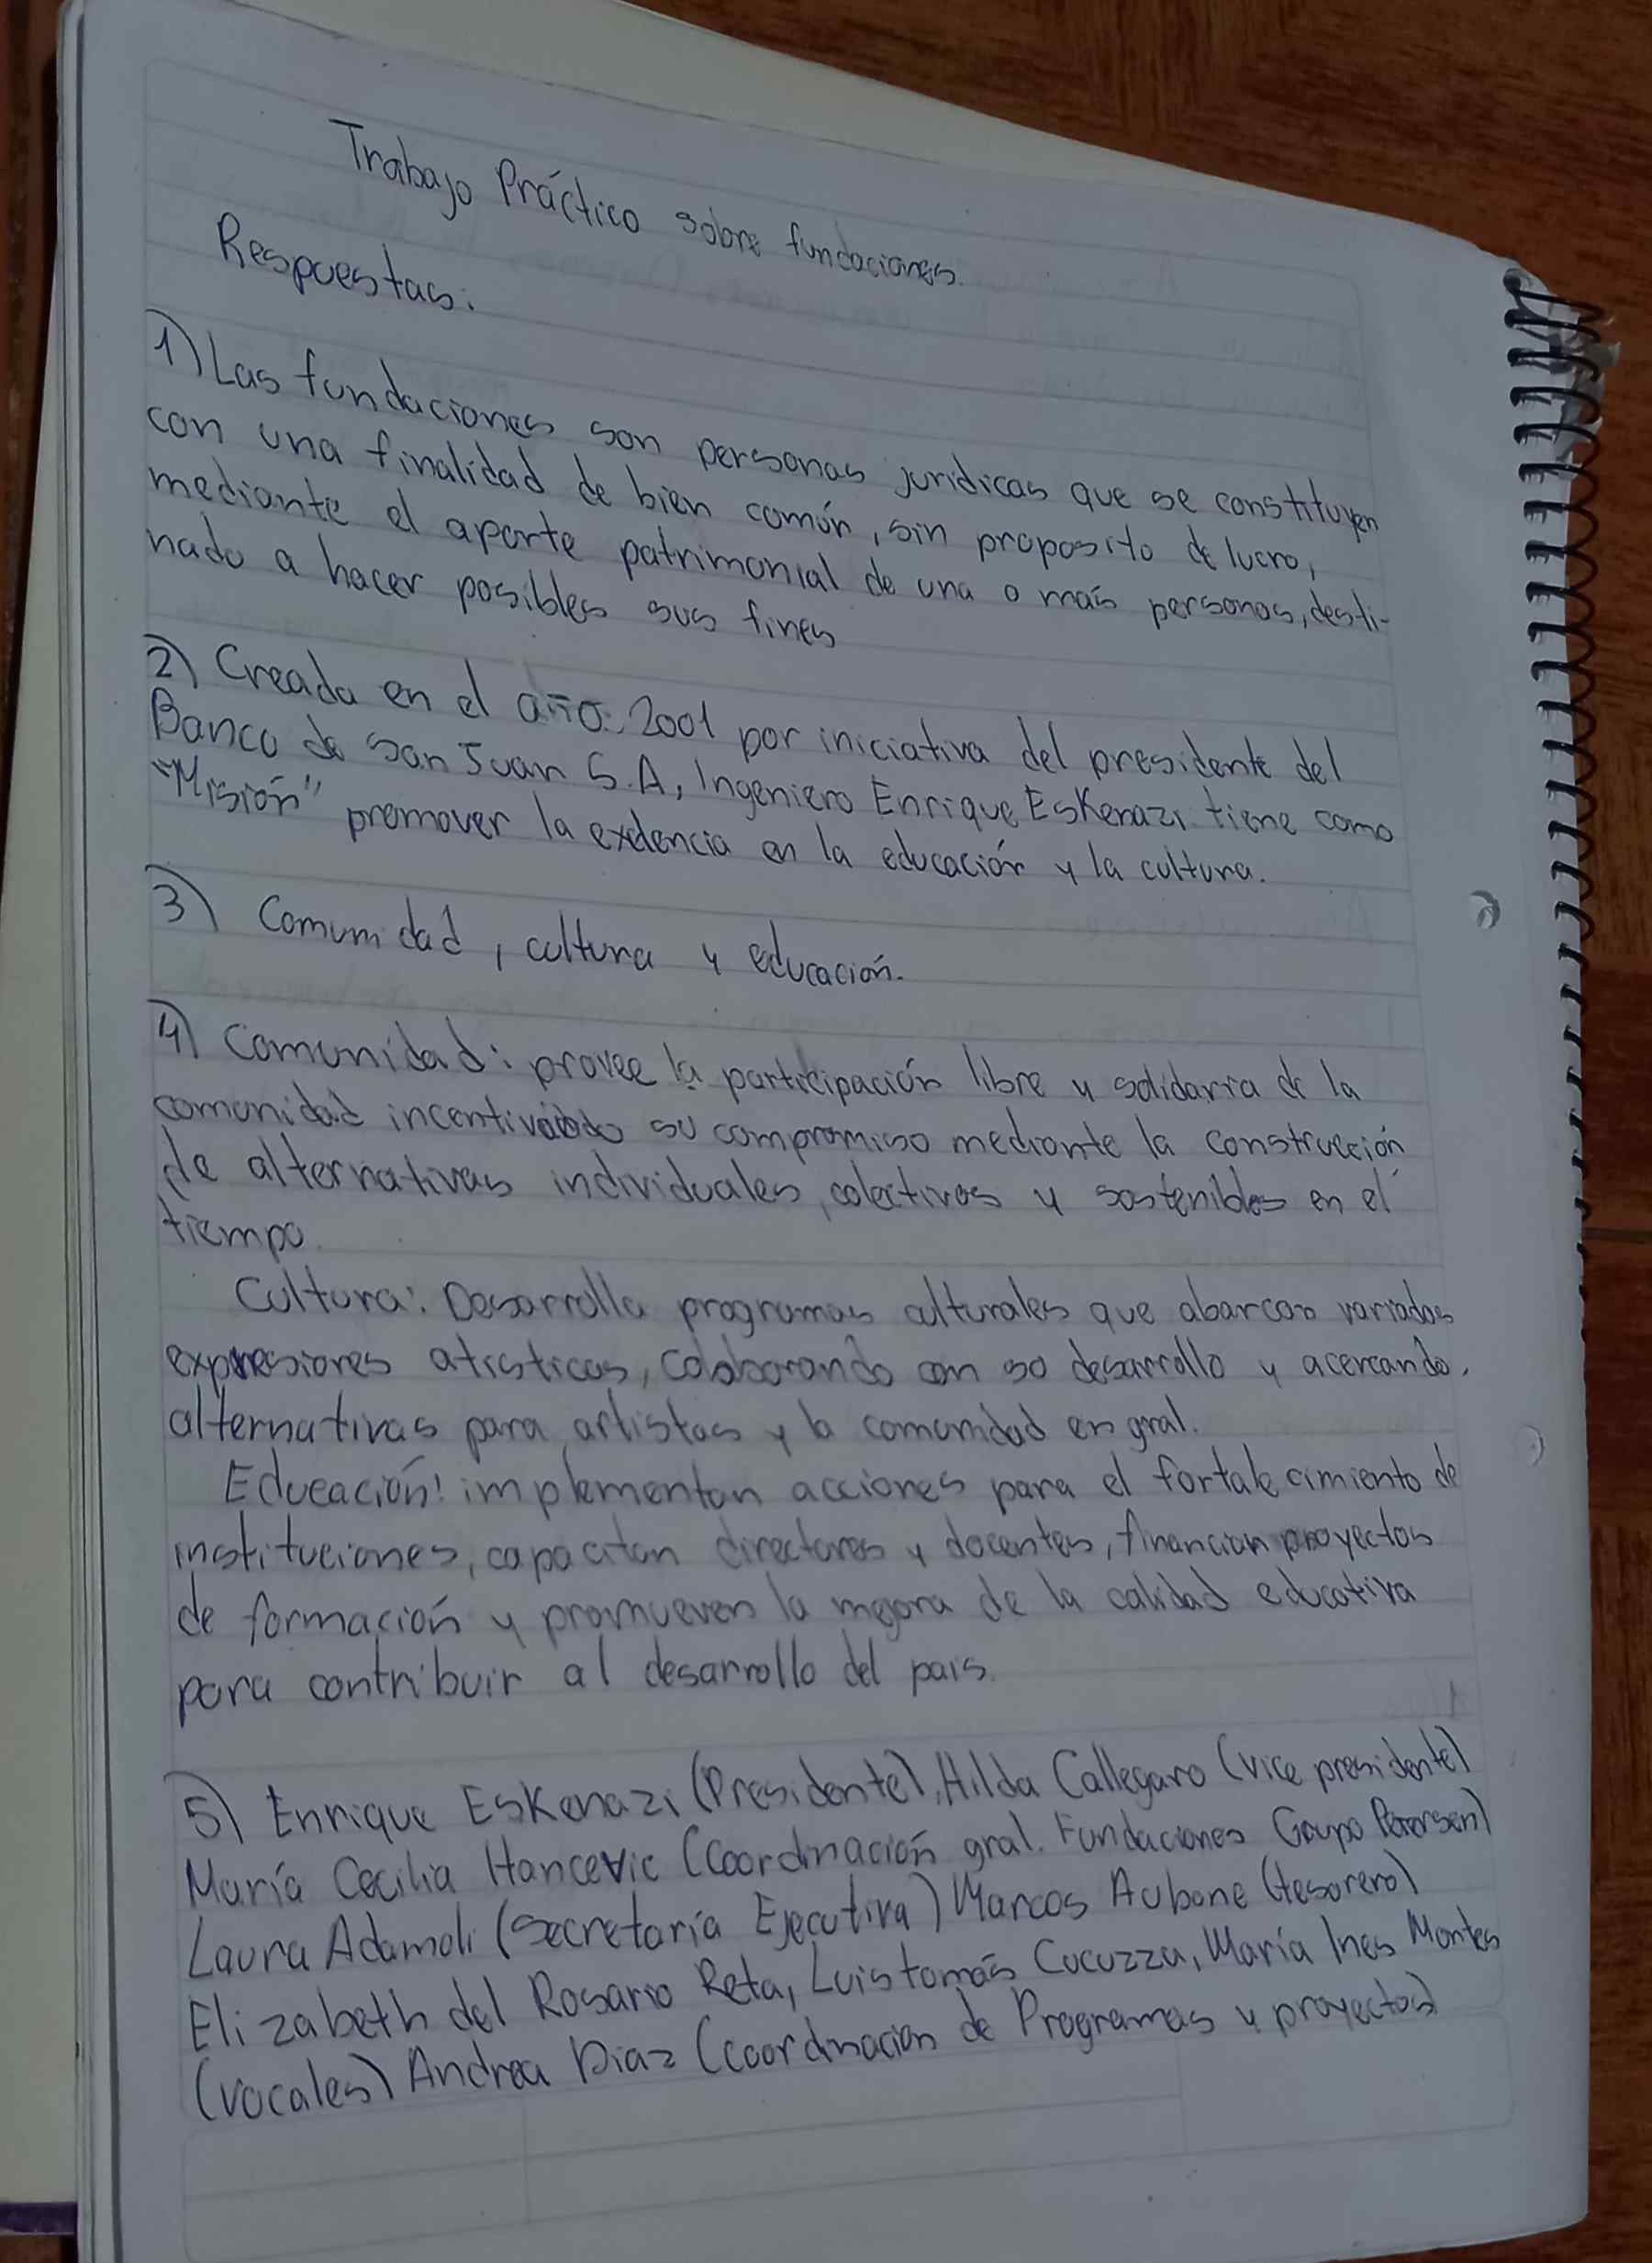 Trabajo Práctico sobre fundaciones.
Respuestas:
1) Las fundaciones son personas jurídicas que se constituyen
con una finalidad de bien común, sin proposito de lucro,
mediante el aporte patrimonial de una o más personas, desti-
nado a hacer posibles sus fines
2) Creada en el año: 2001 por iniciativa del presidente del
Banco de San Juan S.A, Ingeniero Enrique Eskenazi tiene como
"Misión" promover la exelencia en la educación y la cultura.
3) Comunidad, cultura y educación.
4) Comunidad: provee la participación libre y solidaria de la
comunidad incentivando su compromiso mediante la construcción
de alternativas individuales, colectivas y sostenibles en el
tiempo.
Cultura: Desarrolla programas culturales que abarcan variadas
expresiones atisticas, colaborando con so desarrollo y acercando,
alternativas para artistas y la comunidad en gral.
Educación: implementan acciones para el fortalecimiento de
instituciones, capacitan directores y docentes, financian proyectos
de formación y promueven la mejora de la calidad educativa
para contribuir al desarrollo del pais.
5) Enrique Eskenazi (Presidente), Hilda Callegaro (vice presidente)
María Cecilia Hancevic (Coordinación gral. Fundaciones Grupo Petersen)
Laura Adamoli (Secretaría Ejecutiva) Marcos Aubone (tesorero)
Elizabeth del Rosario Reta, Luis tomás Cucuzza, María Ines Montes
(vocales) Andrea Diaz (coordinacion de Programas y proyectos)